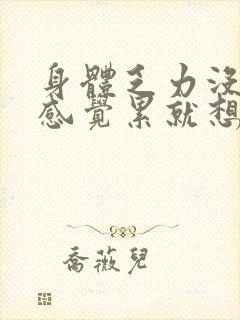 身體乏力沒
感覺累就想
喬薇兒